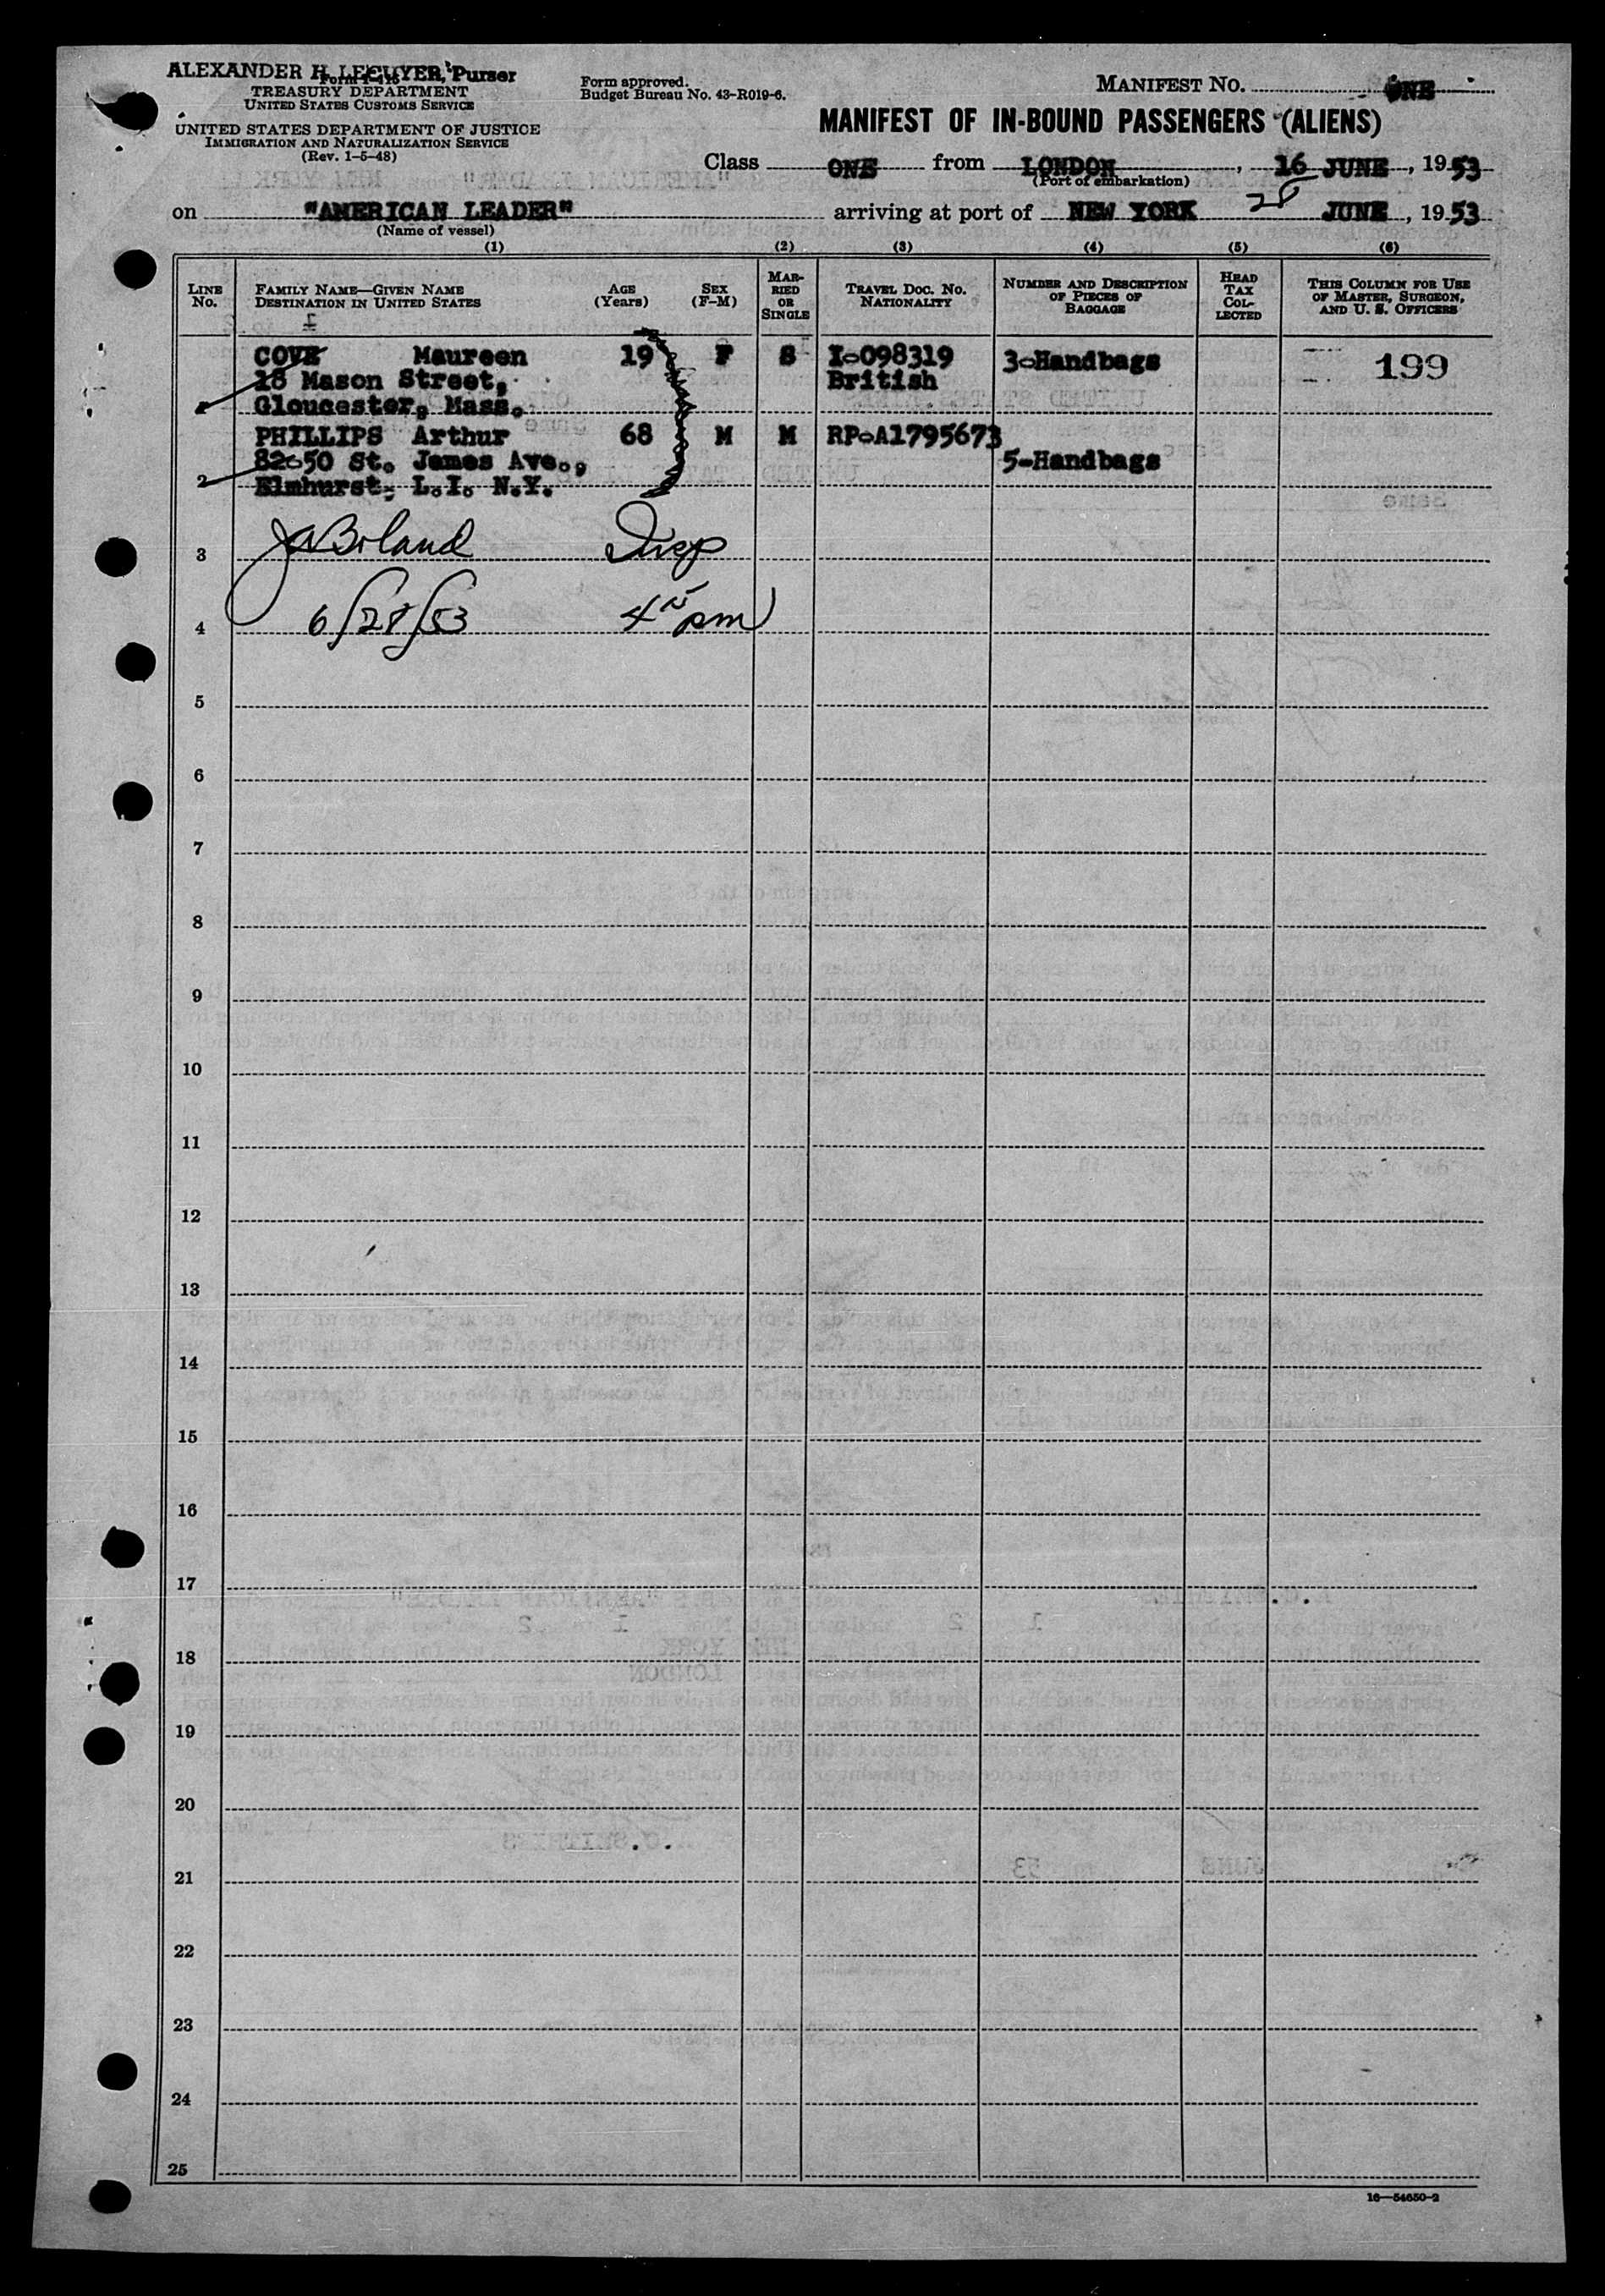 ALEXANDER H. LECUYER, Purser
Form I-415
TREASURY DEPARTMENT
UNITED STATES CUSTOMS SERVICE
UNITED STATES DEPARTMENT OF JUSTICE
IMMIGRATION AND NATURALIZATION SERVICE
(Rev. 1-5-48)
Form approved.
Budget Bureau No. 43-R019-6.
MANIFEST NO. ONE
MANIFEST OF IN-BOUND PASSENGERS (ALIENS)
Class ONE from LONDON, 16 JUNE, 1953
(Port of embarkation)
on "AMERICAN LEADER" arriving at port of NEW YORK 28 JUNE, 1953
(Name of vessel)
(1) (2) (3) (4) (5) (6)
LINE No. FAMILY NAME—GIVEN NAME DESTINATION IN UNITED STATES AGE (Years) SEX (F-M) MARRIED OR SINGLE TRAVEL DOC. NO. NATIONALITY NUMBER AND DESCRIPTION OF PIECES OF BAGGAGE HEAD TAX COLLECTED THIS COLUMN FOR USE OF MASTER, SURGEON, AND U. S. OFFICERS
COVE Maureen 19 F S I-098319 3-Handbags 199
18 Mason Street, British
Gloucester, Mass.
PHILLIPS Arthur 68 M M RP-A1795673
82-50 St. James Ave., 5-Handbags
2 Elmhurst, L.I. N.Y.
3 Boland Insp
4 6/28/53 4 15 pm
5
6
7
8
9
10
11
12
13
14
15
16
17
18
19
20
21
22
23
24
25
16—54650-2